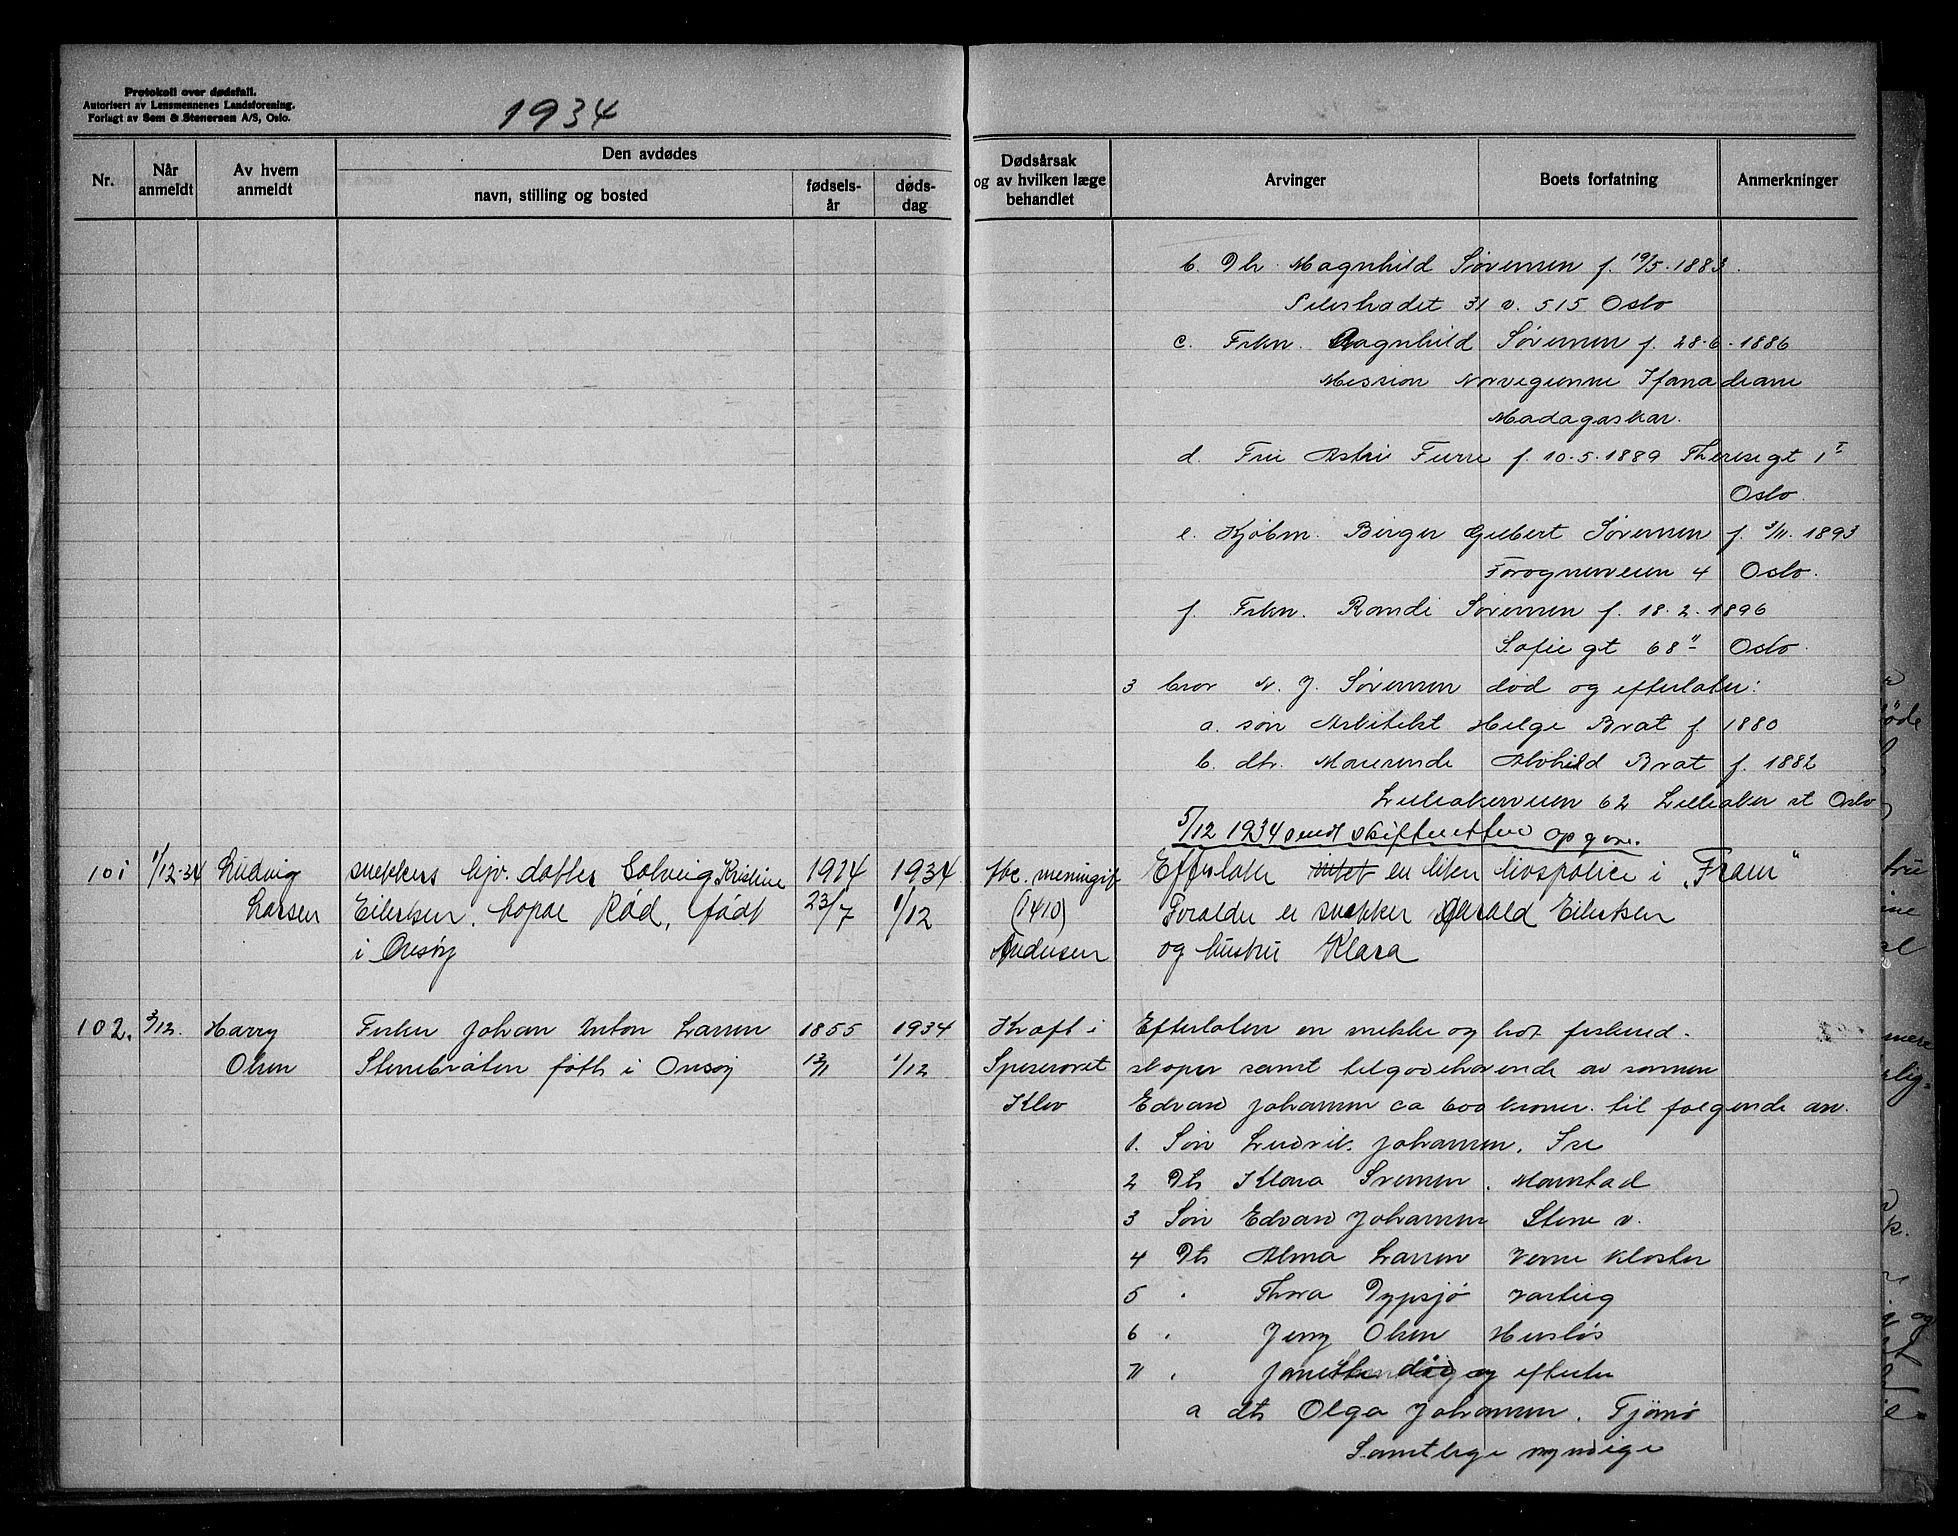 Protokoll over dødsfall.
Autorisert av Lensmennenes Landsforening.
Forlagt av Sem & Stenersen A/S, Oslo.
1934
Nr.
Når anmeldt
Av hvem anmeldt
Den avdødes
navn, stilling og bosted
fødsels-år
døds-dag
Dødsårsak og av hvilken læge behandlet
Arvinger
Boets forfatning
Anmerkninger
b. Dtr. Magnhild Sørensen f. 19/5.1883.
31 v. 515 Oslo
c. Frkn. Ragnhild Sørensen f. 28.6.1886
Mission Norvegienne Ifanadiane
Madagaskar.
d. Fru Astri Furre f. 10.5.1889 Theresegt 1 I
Oslo.
e. Kjøbm. Birger Gilbert Sørensen f. 3/11.1893
Frognerveien 4 Oslo.
f. Frkn. Randi Sørensen f. 18.2.1896
Sofiegt 68 II Oslo.
3 bror N. J. Sørensen død og efterlater:
a. søn Arkitekt Helge Brat f. 1880
b. dtr. Alvhild Brat f. 1882
Lilleakerveien 62 Lilleaker st Oslo
5/12 1934 sendt skifteretten opgave.
101 1/12-34 Ludvig snekkers hjv. datter Solveig Kristine 1914 1934 tbc. meningit Efterlater en liten livspolice i „Fram"
Larsen Eilertsen, Rød, født 23/7 1/12 (1410) Foreldre er snekker Harald Eilertsen
i Onsøy Andersen og hustru Klara
102. 3/12. Harry Fisker Johan Anton Larsen 1855 1934 Kræft i Efterlater en snekke og hot fiskered-
Olsen Stenebråten født i Onsøy 1/12 Spiserøret skaper samt tilgodehavende av sønnen
Klev Edvard Johansen ca 600 kroner. til følgende arv.
1. Søn Ludvik Johansen.
2 Dtr Klara Svensen. Manstad
3 Søn Edvard Johansen Stene v.
4 Dtr Alma Larsen Verne Kloster
5 " Thora Dypsjø Varteig
6 " Jenny Olsen Husløs
7 " død og efterlater
a dtr Olga Johansen. Tjømø
Samtlige myndige